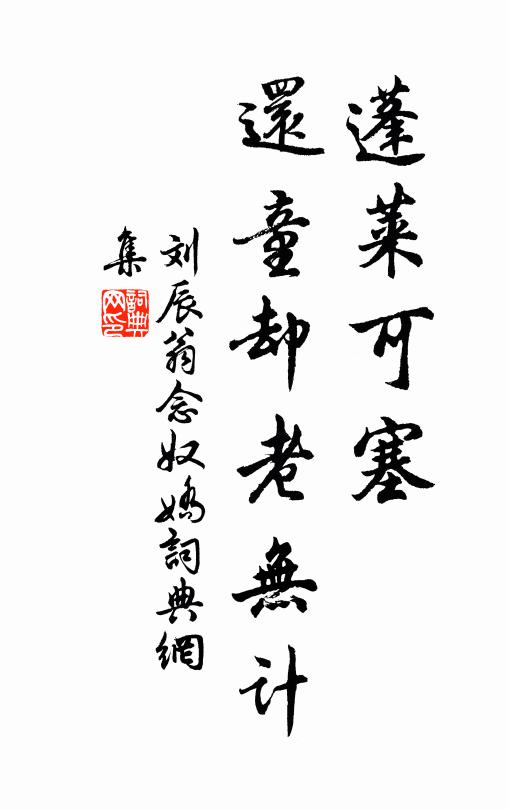 蓬萊可塞
還童却老無計
刘辰翁念奴嬌詞典網
集
詞典网印